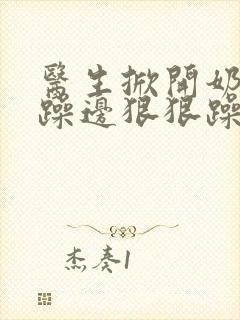 醫生掀開奶
躁邊狠狠躁
杰奏1